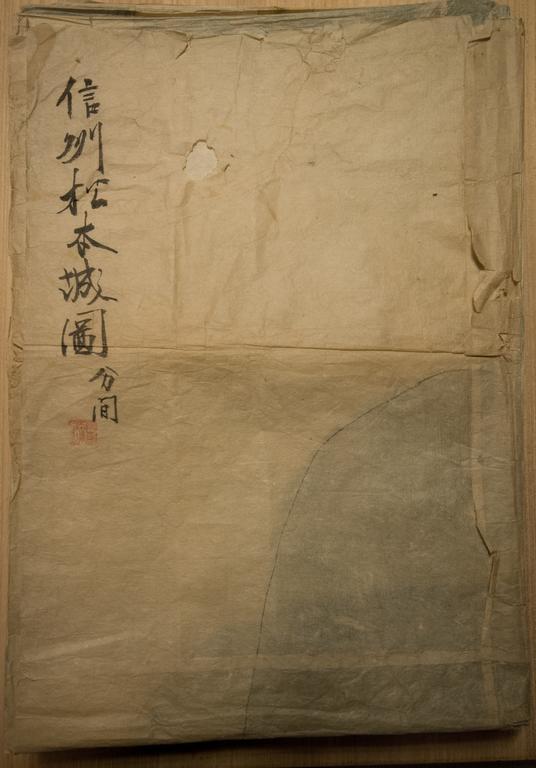 信州松本城圖
分间